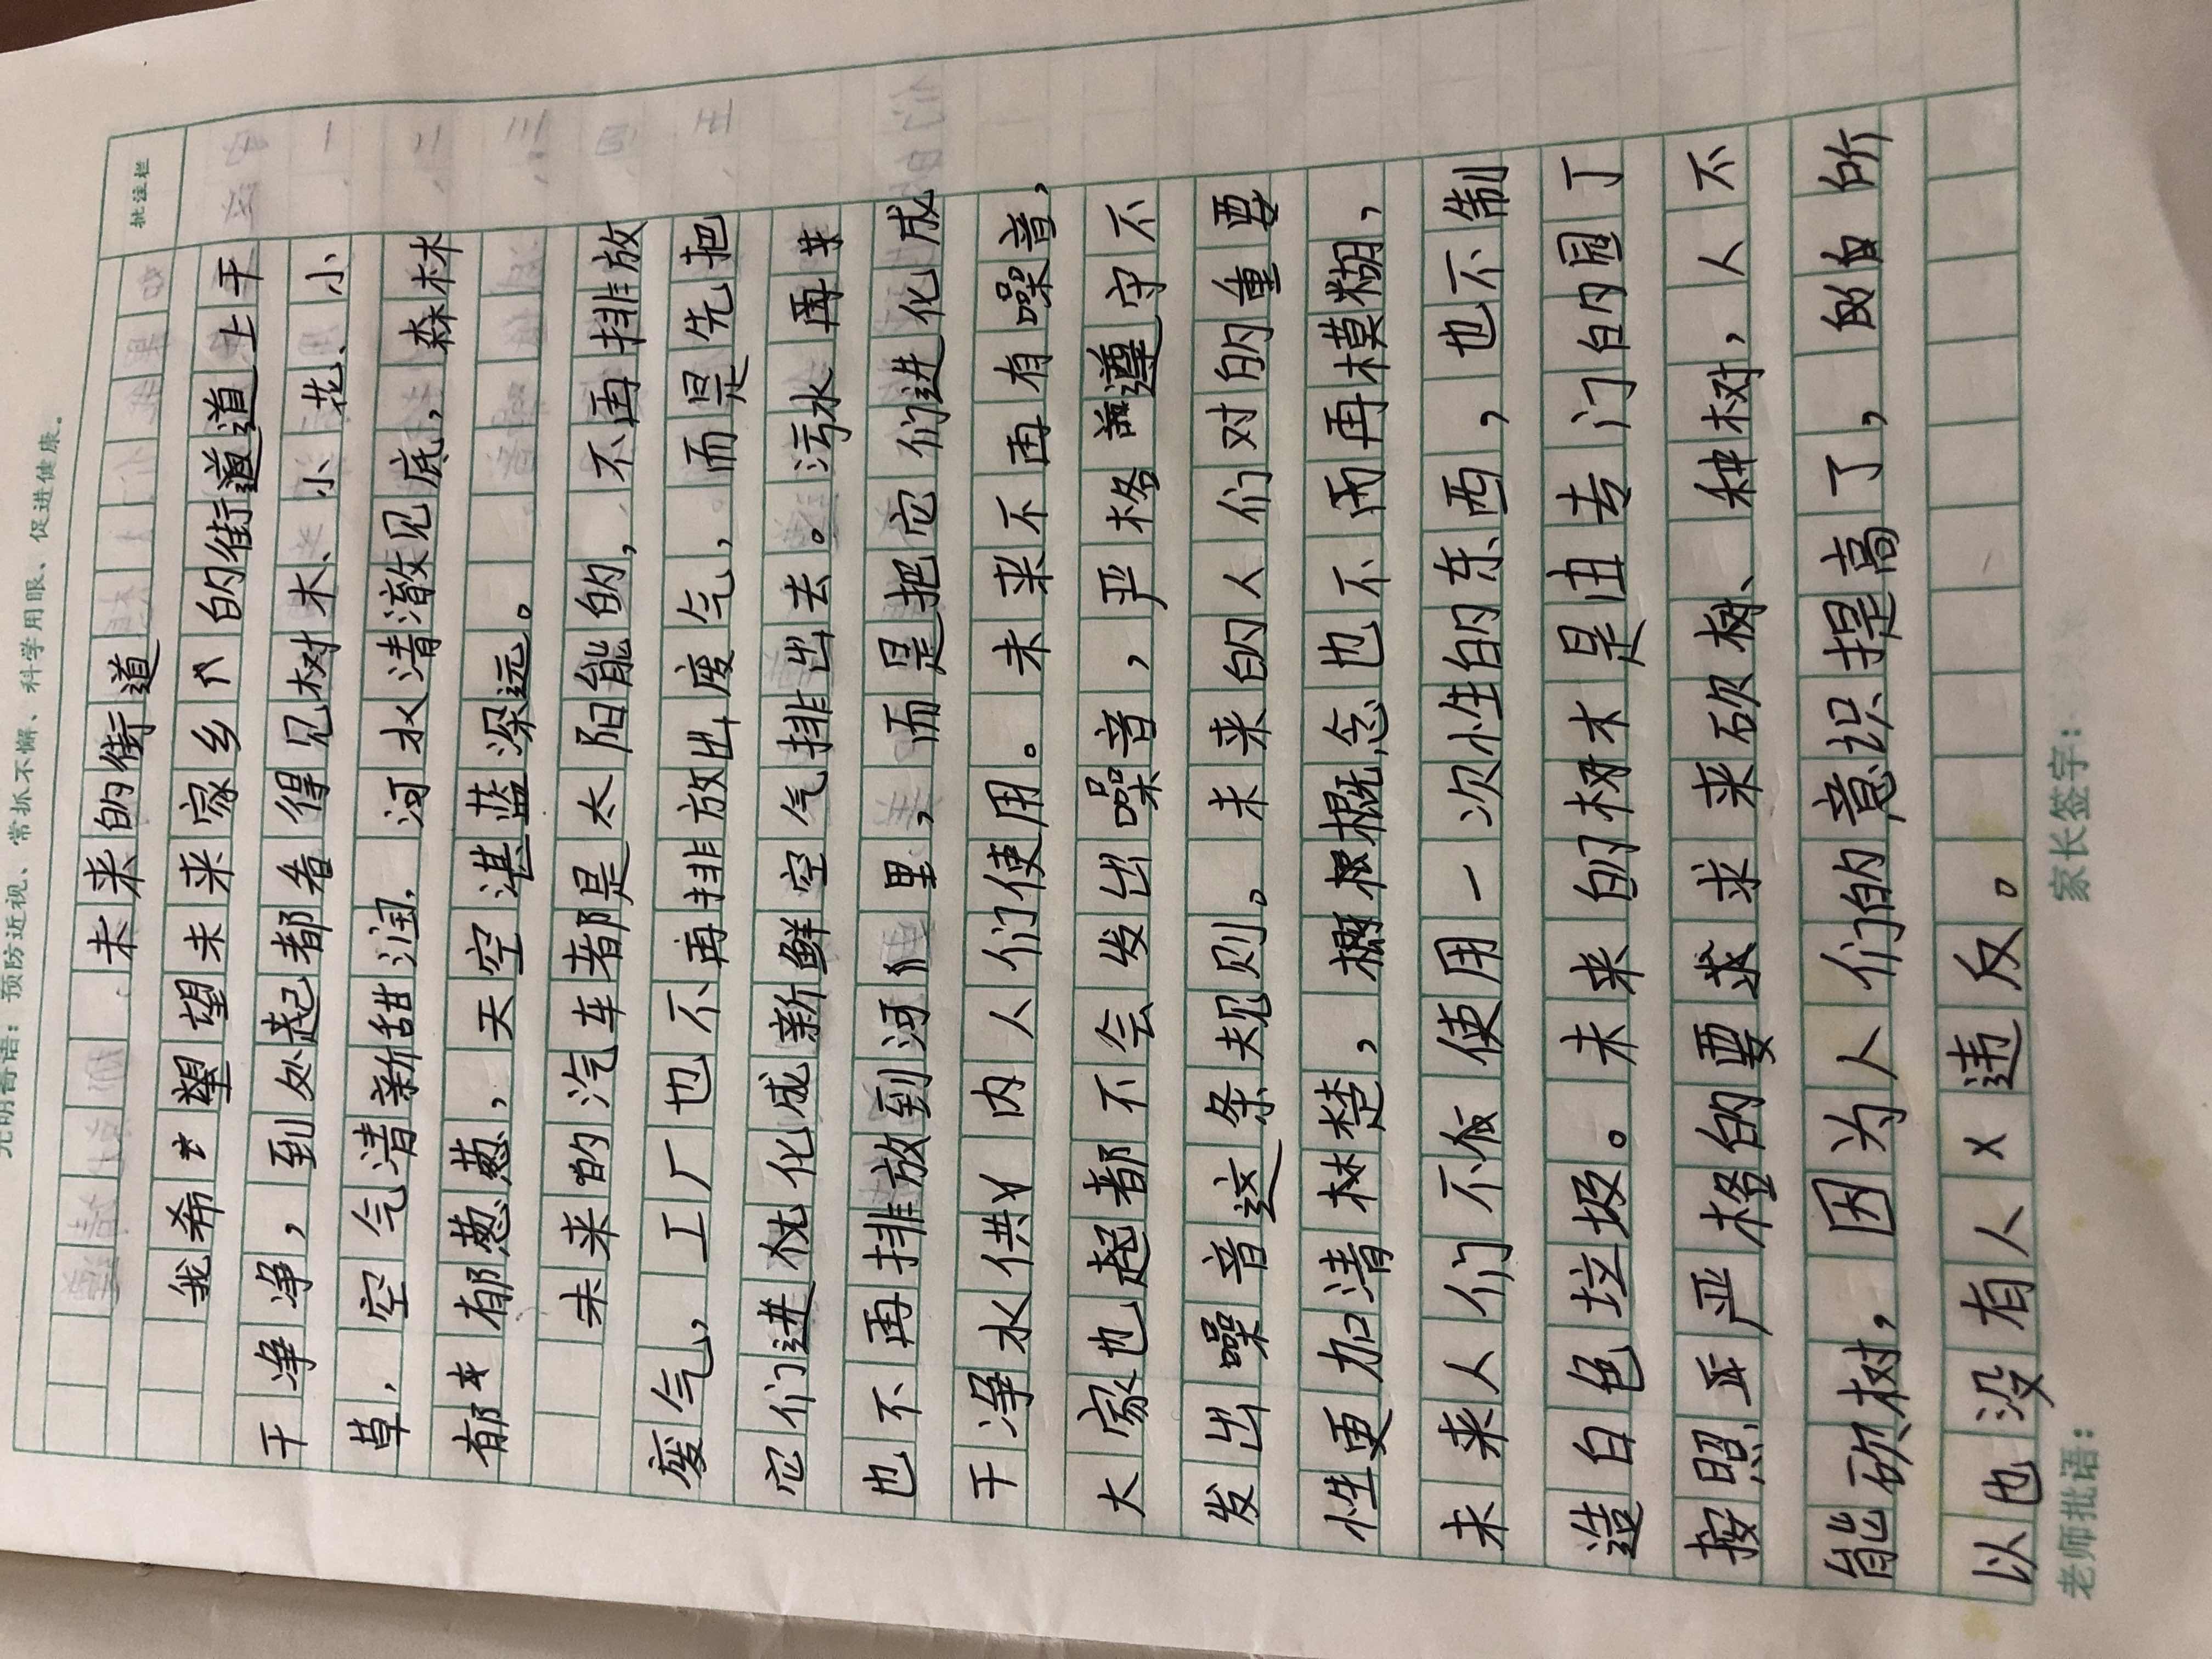 光明寄语：预防近视、常抓不懈、科学用眼、促进健康。
批注栏
未来的街道
我希望望未来家乡的街道道上干
干净净，到处起都看得见树木、小花、小
草，空气清新甜润，河水清澈见底，森林
郁郁葱葱，天空湛蓝深远。
未来的汽车都是太阳能的，不再排放
废气，工厂也不再排放出废气，而是先把
它们进化成新鲜空气排出去。污水再
也不再排放到河里，而是把它们进化成
干净水供人们使用。未来不再有噪音，
大家也起都不会发出噪音，严格遵守不
发出噪音这条规则。未来的人们对的重要
性更加清楚，概念也不再模糊，
未来人们不使用一次性的东西，也不制
造白色垃圾。未来的树木是由专门的园丁
按照严格的要求来砍树、种树，人不
能砍树，因为人们的意识提高了，的所
以也没有人违反。
老师批语：
家长签字：